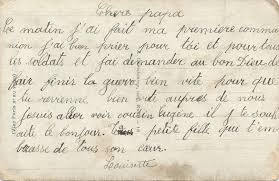 Chere papa
Ce matin j'ai fait ma première commu
nion j'ai bien prier pour toi et pour tous
les soldats et j'ai demander au bon Dieu de
fair finir la guerre bien vite pour que
tu revienne bien vite auprès de nous
Jesus aller voir cousin eugène il te souh
aite le bonjour. petite fille qui t'em
brasse de tous son cœur.
Louisette